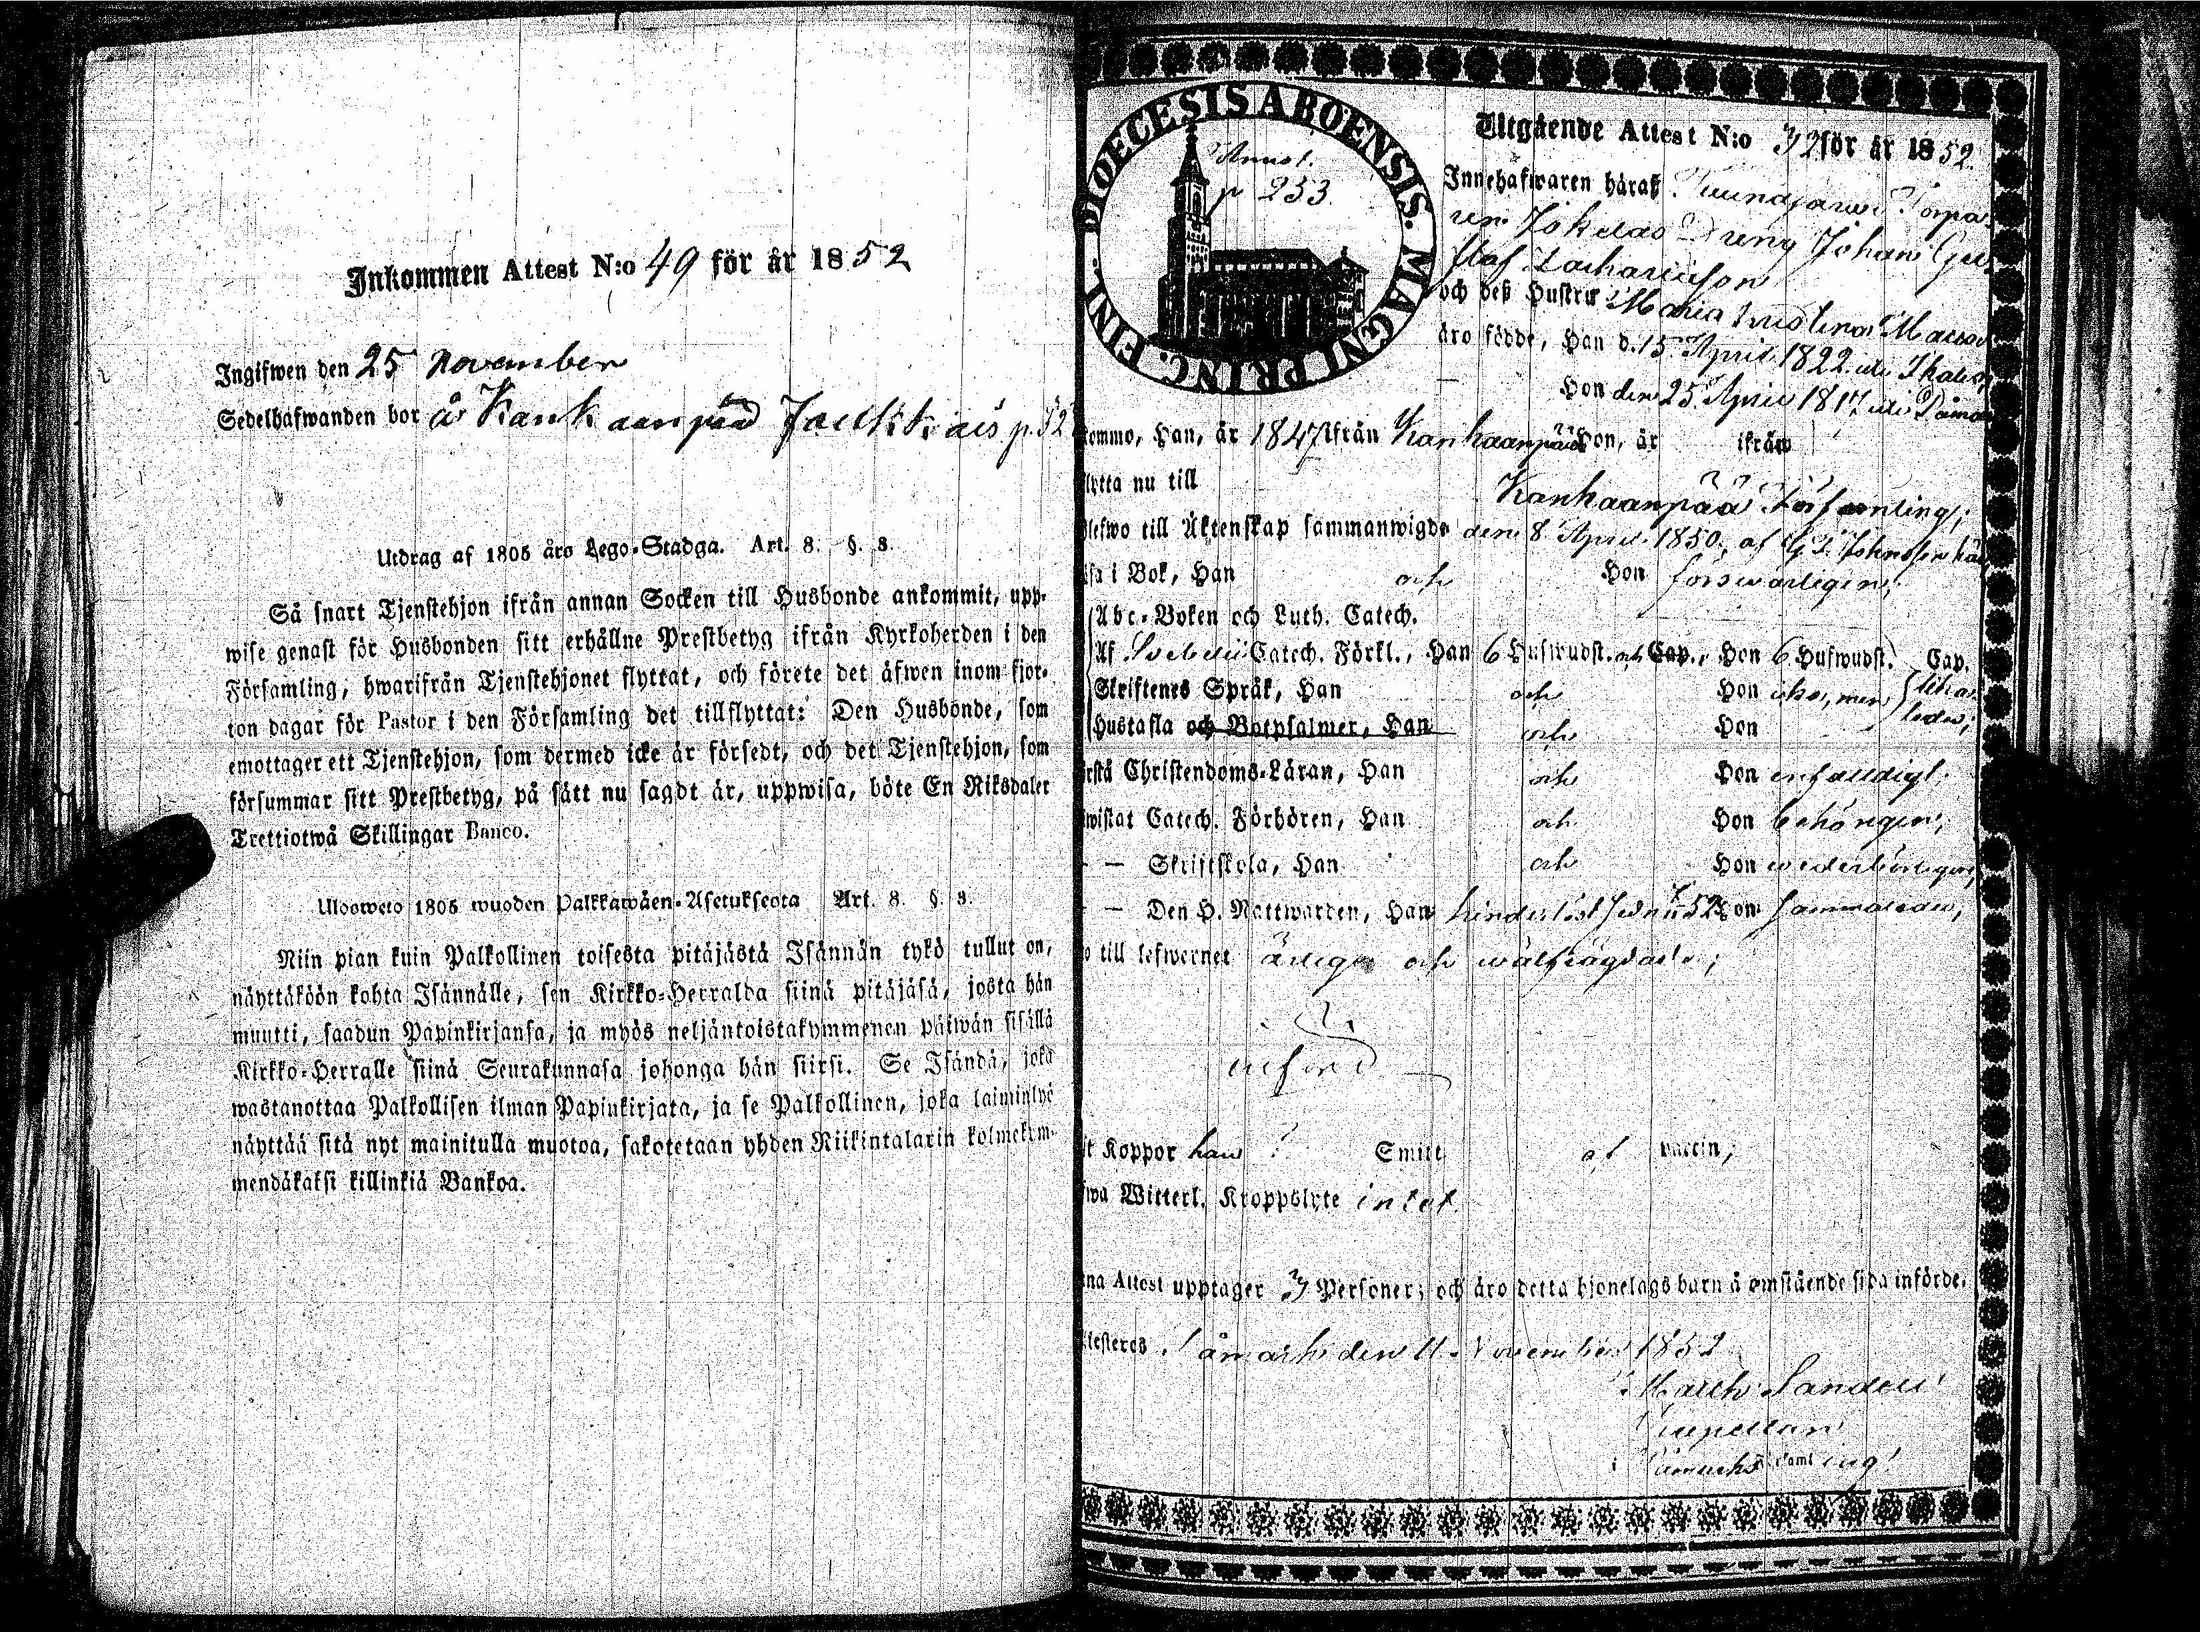 Inkommen Attest N:o 49 för år 1852
Ingifwen den 25 November
Sedelhafwanden bor å Kankaanpää p. 52
Utdrag af 1805 års Lego-Stadga. Art. 8. §. 8.
Så snart Tjenstehjon ifrån annan Socken till Husbonde ankommit, upp-
wise genast för Husbonden sitt erhållne Prestbetyg ifrån Kyrkoherden i den
Församling, hwarifrån Tjenstehjonet flyttat, och förete det äfwen inom fjor-
ton dagar för Pastor i den Församling det tillflyttat: Den Husbonde, som
emottager ett Tjenstehjon, som dermed icke är försedt, och det Tjenstehjon, som
försummar sitt Prestbetyg, på sätt nu sagdt är, uppwisa, böte En Riksdaler
Trettiotwå Skillingar Banco.
Ulosweto 1805 wuoden Palkkawäen-Asetuksesta Art. 8. §. 8.
Niin pian kuin Palkollinen toisesta pitäjästä Isännän tykö tullut on,
näyttäköön kohta Isännälle, sen Kirkko-Herralda siinä pitäjäsä, josta hän
muutti, saadun Papinkirjansa, ja myös neljäntoistakymmenen päiwän sisällä
Kirkko-Herralle siinä Seurakunnasa johonga hän siirsi. Se Isändä, joka
wastanottaa Palkollisen ilman Papinkirjata, ja se Palkollinen, joka laiminlyö
näyttää sitä nyt mainitulla muotoa, sakotetaan yhden Riikintalarin kolmekym-
mendäkaksi killinkiä Bankoa.
DIOECESIS ABOENSIS. MAGNI PRINC. FINL.
Annot.
p 253
Utgående Attest N:o 32 för år 1852.
Innehafwaren häraf
Jokelas Dreng Johan Gus-
staf Zachariæson
och deß Hustru Maria Kristina
äro födde, Han d. 15 April 1822 uti
Hon den 25 April 1817 uti
kommo, Han, år 1847 ifrån Kankaanpää Hon, år ifrån
lytta nu till Kankaanpää Församling;
lefwo till Äktenskap sammanwigde den 8 April 1850, af
sa i Bok, Han och Hon försvarligen;
Abc-Boken och Luth. Catech.
Af Svebelii Catech. Förkl., Han 6 Hufwudst. och Cap., Hon 6 Hufwudst. Cap.
Skriftenes Språk, Han och Hon icke, men
Hustafla och Botpsalmer, Han och Hon
rstå Christendoms-Läran, Han och Hon enfaldigt;
wistat Catech. Förhören, Han och Hon behörigen;
— — Skriftskola, Han och Hon wederbörligen;
— — Den H. Nattwarden, Han Hon
o till lefwernet ärlige och wälfrägdade;
t Koppor han Smitt af vaccin;
wa Witterl. Kroppslyte intet.
na Attest upptager 3 Personer; och äro detta hjonelags barn å omstående sida införde.
testeras Jämijärvi den 11 November 1852
Capellan